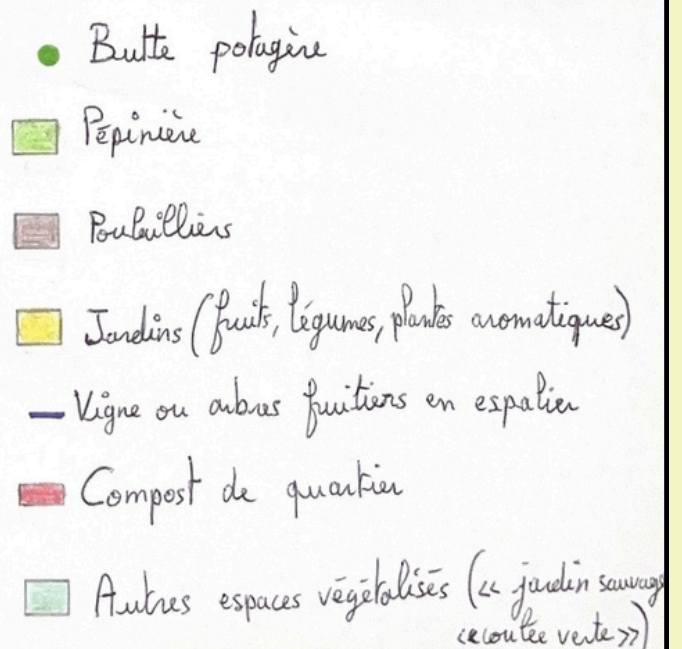 Butte potagère
Pépinière
Poulailliers
Jardins (fruits, légumes, plantes aromatiques)
Vigne ou arbres fruitiers en espalier
Compost de quartier
Autres espaces végétalisés (<< jardin sauvage
<<coulée verte>>)